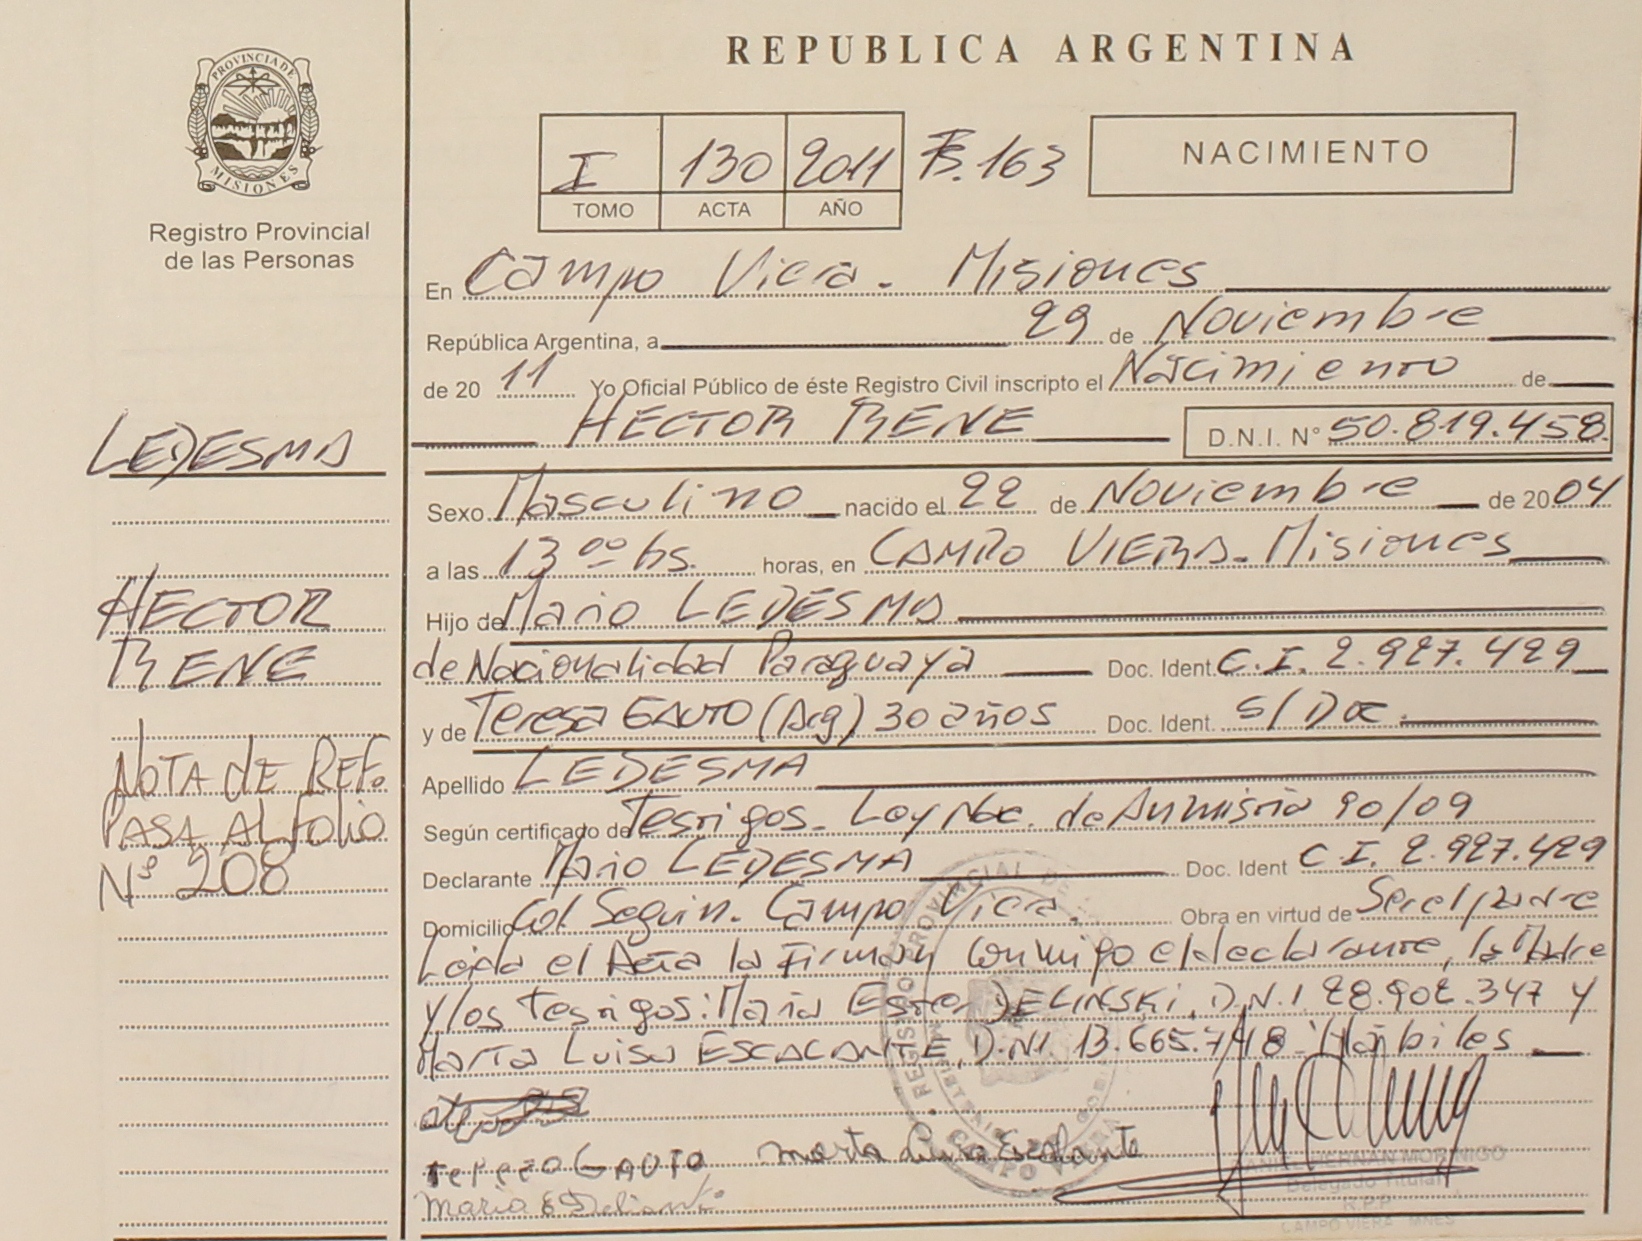 PROVINCIA DE
MISIONES
Registro Provincial
de las Personas
LEDESMA
HECTOR
RENE
NOTA DE REF.
PASA AL FOLIO
N° 208
REPUBLICA ARGENTINA
I 130 2011 F. 163
TOMO ACTA AÑO
NACIMIENTO
En Campo Viera - Misiones
República Argentina, a 29 de Noviembre
de 2011 Yo Oficial Público de éste Registro Civil inscripto el Nacimiento de
HECTOR RENE D.N.I. N° 50.819.458
Sexo Masculino nacido el 22 de Noviembre de 2004
a las 13 00 hs. horas, en CAMPO VIERA - Misiones
Hijo de Mario LEDESMA
de Nacionalidad Paraguaya Doc. Ident. C.I. 2.927.429
y de Teresa GAUTO (Arg) 30 años Doc. Ident. S/Doc.
Apellido LEDESMA
Según certificado de Testigos - Ley Nac. de Amnistia 90/09
Declarante Mario LEDESMA Doc. Ident C.I. 2.927.429
Domicilio Col Seguin - Campo Viera. Obra en virtud de Ser el padre
Leida el Acta la Firman conmigo el declarante, la Madre
y los testigos: Maria Ester DELINSKI, D.N.I 28.902.347 y
Marta Luisa ESCALANTE, D.N.I 13.665.748 - Habiles
tereza GAUTO marta Luisa Escalante
Maria E
REGISTRO PROVINCIAL DE
CAMPO VIERA
HERNAN MORINIGO
Delegado Titular
R.P.P
CAMPO VIERA - MNES